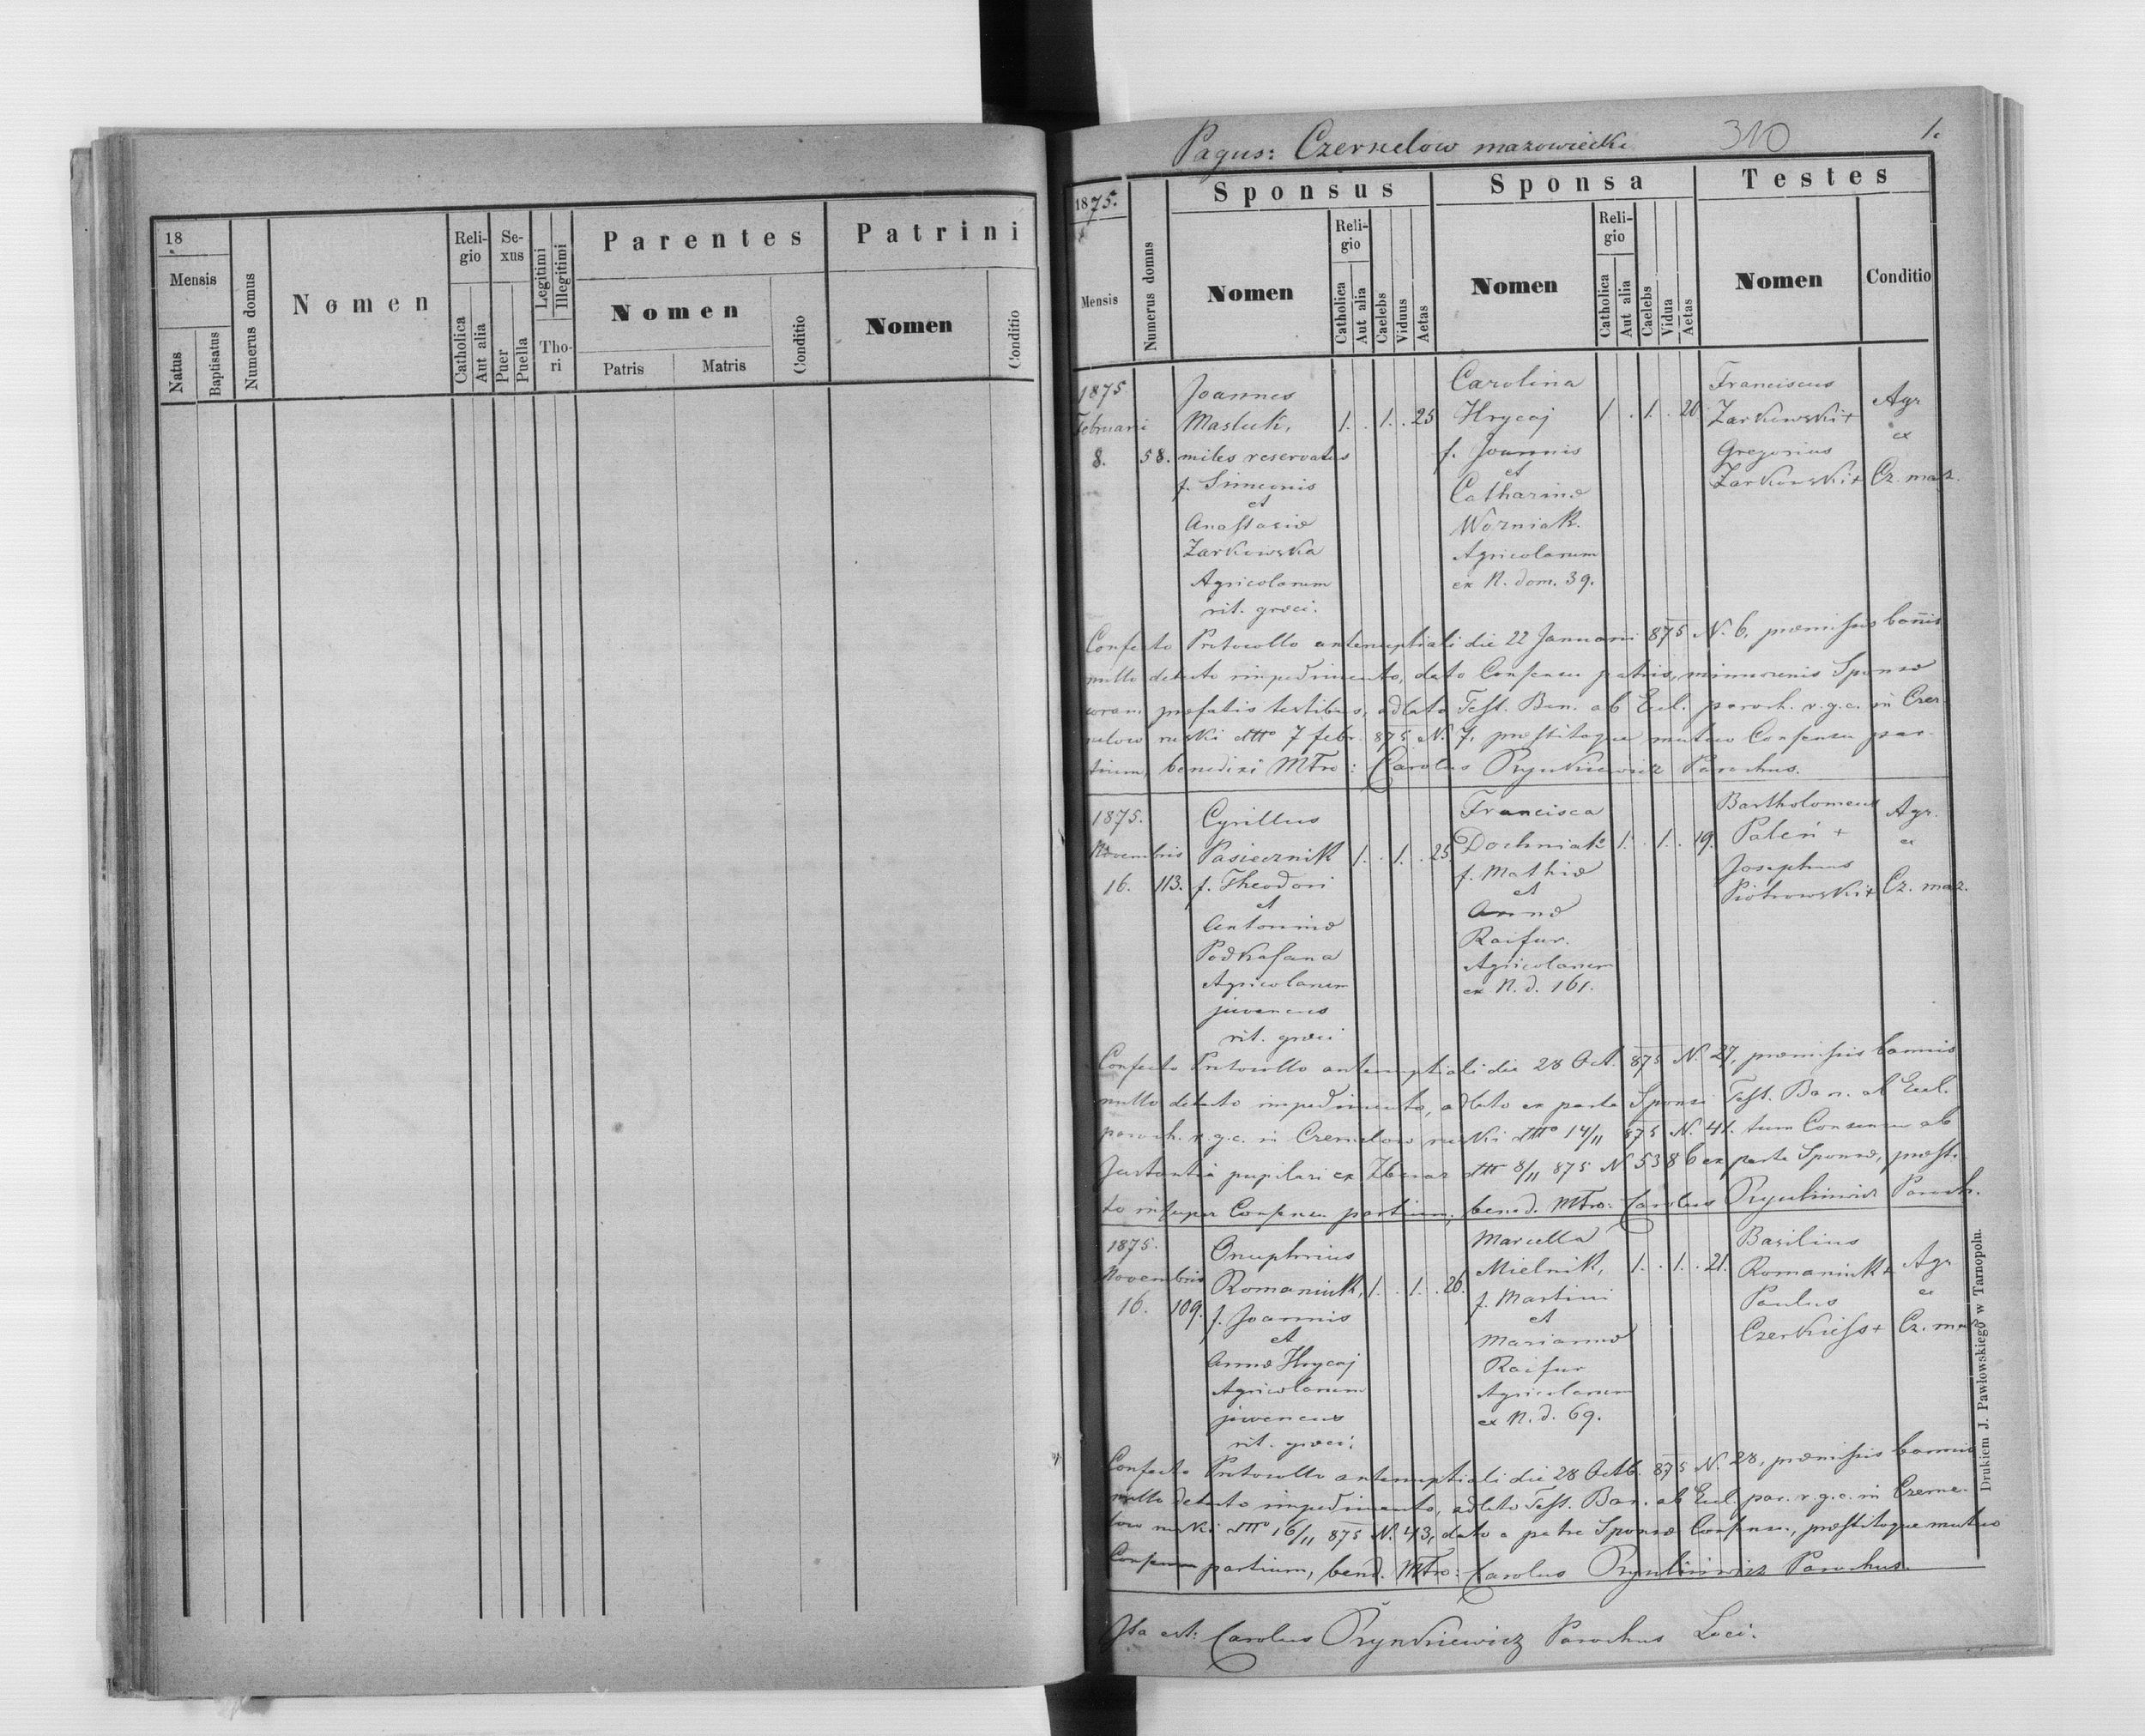 18
Mensis
Natus
Baptisatus
Numerus domus
Nomen
Reli-
gio
Catholica
Aut alia
Se-
xus
Puer
Puella
Legitimi
Illegitimi
Tho-
ri
Parentes
Nomen
Patris
Matris
Conditio
Patrini
Nomen
Conditio
Pagus: Czernelow mazowiecki 310 1.
1875.
Mensis
Numerus domus
Sponsus
Nomen
Reli-
gio
Catholica
Aut alia
Caelebs
Viduus
Aetas
Sponsa
Nomen
Reli-
gio
Catholica
Aut alia
Caelebs
Vidua
Aetas
Testes
Nomen
Conditio
1875.
Februarii
8.
58.
Joannes
Masluk,
miles reservatus
f. Simeonis
et
Anastasiæ
Zarkowska
Agricolarum
rit. græci.
1. . 1. . 25
Carolina
Hrycaj
f. Joannis
et
Catharinæ
Wozniak.
Agricolarum
ex N. dom. 39.
1 . 1. . 20
Franciscus
Zarkowski +
Gregorius
Zarkowski +
Agr
ex
Cz. maz.
Confecto Protocollo antenuptiali die 22 Januarii 875 N. 6, præmissis bañis
nullo detecto impedimento, dato Consensu patris, minorenis Sponsæ
coram præfatis testibus, adlato Test. Ban. ab Eccl. paroch. r.g.c. in Czer-
nelow ruski dtto 7 febr. 875 N. 7, præstitoque mutuo Consensu par-
tium, benedixi Mtro: Carolus Prynkiewicz Parochus.
1875.
Novembris
16.
113.
Cyrillus
Pasiecznik
f. Theodori
et
Antoninæ
Podkasana
Agricolarum
juvencus
rit. græci
1. . 1. . 25
Francisca
Dochniak
f. Mathiæ
et
Annæ
Raifur.
Agricolarum
ex N. d. 161.
1. . 1. . 19.
Bartholomeus
Paleń +
Josephus
Piotrowski +
Agr.
ex
Cz. maz.
Confecto Protocollo antenuptiali die 28 Oct. 875 N. 27, præmissis bannis
nullo detecto impedimento, adlato ex parte Sponsi Test. Ban. ab Eccl.
paroch. r.g.c. in Czernelow ruski dtto 14/11 875 N. 41. tum Consensu ab
Instantia pupilari ex Zbaraz dtto 8/11 875 N 5386 ex parte Sponsæ, præsti-
to insuper Consensu partium, bened. Mtro: Carolus Prynkiewicz Paroch.
1875.
Novembris
16.
109.
Onuphrius
Romaniuk,
f. Joannis
et
Annæ Hrycaj
Agricolarum
juvencus
rit. græci.
1. . 1. . 26.
Marcella
Mielnik,
f. Martini
et
Mariannæ
Raifur
Agricolarum
ex N. d. 69.
1. . 1. . 21.
Basilius
Romaniuk +
Paulus
Czerkiess +
Agr
ex
Cz. maz
Confecto Protocollo antenuptiali die 28 Octb. 875 N. 28, præmissis bannis
nullo detecto impedimento, adlato Test. Ban. ab Eccl. par. r.g.c. in Czerne-
low ruski dtto 16/11 875 N. 43, dato a patre Sponsæ Consensu, præstitoque mutuo
Consensu partium, bened. Mtro: Carolus Prynkiewicz Parochus.
Ita est: Carolus Prynkiewicz Parochus Loci.
Drukiem J. Pawłowskiego w Tarnopolu.